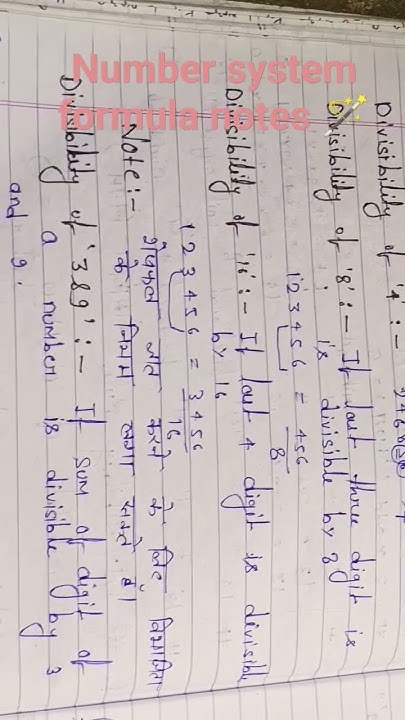 Number system
formula notes
Divisibility of '4' :-
Divisibility of '8' :- If last three digit is
is divisible by 8
123456 = 456
8
Divisibility of '16' :- If last 4 digit is divisible
by 16
123456 = 3456
16
Note :- शेषफल ज्ञात करने के लिए
के नियम लगा सकते हैं।
Divisibility of '3&9' :- If som of digit of
a number is divisible by 3
and 9.